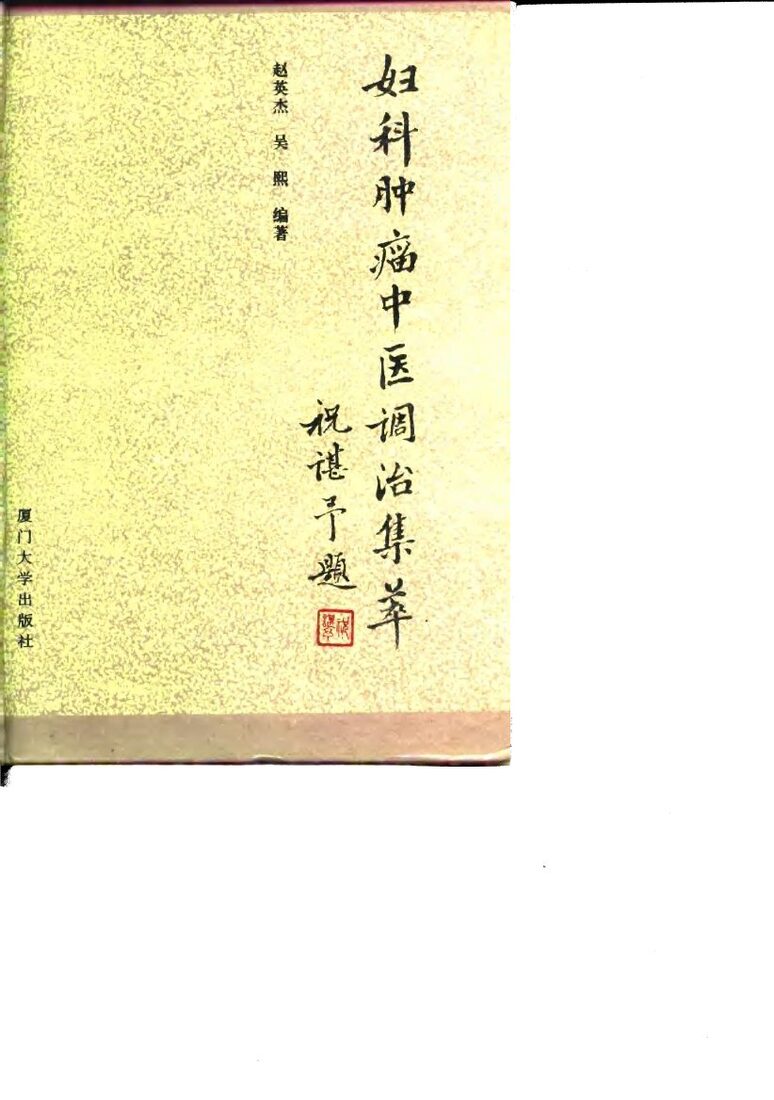 妇科肿瘤中医调治集萃
祝谌予题
赵英杰 吴熙 编著
厦门大学出版社